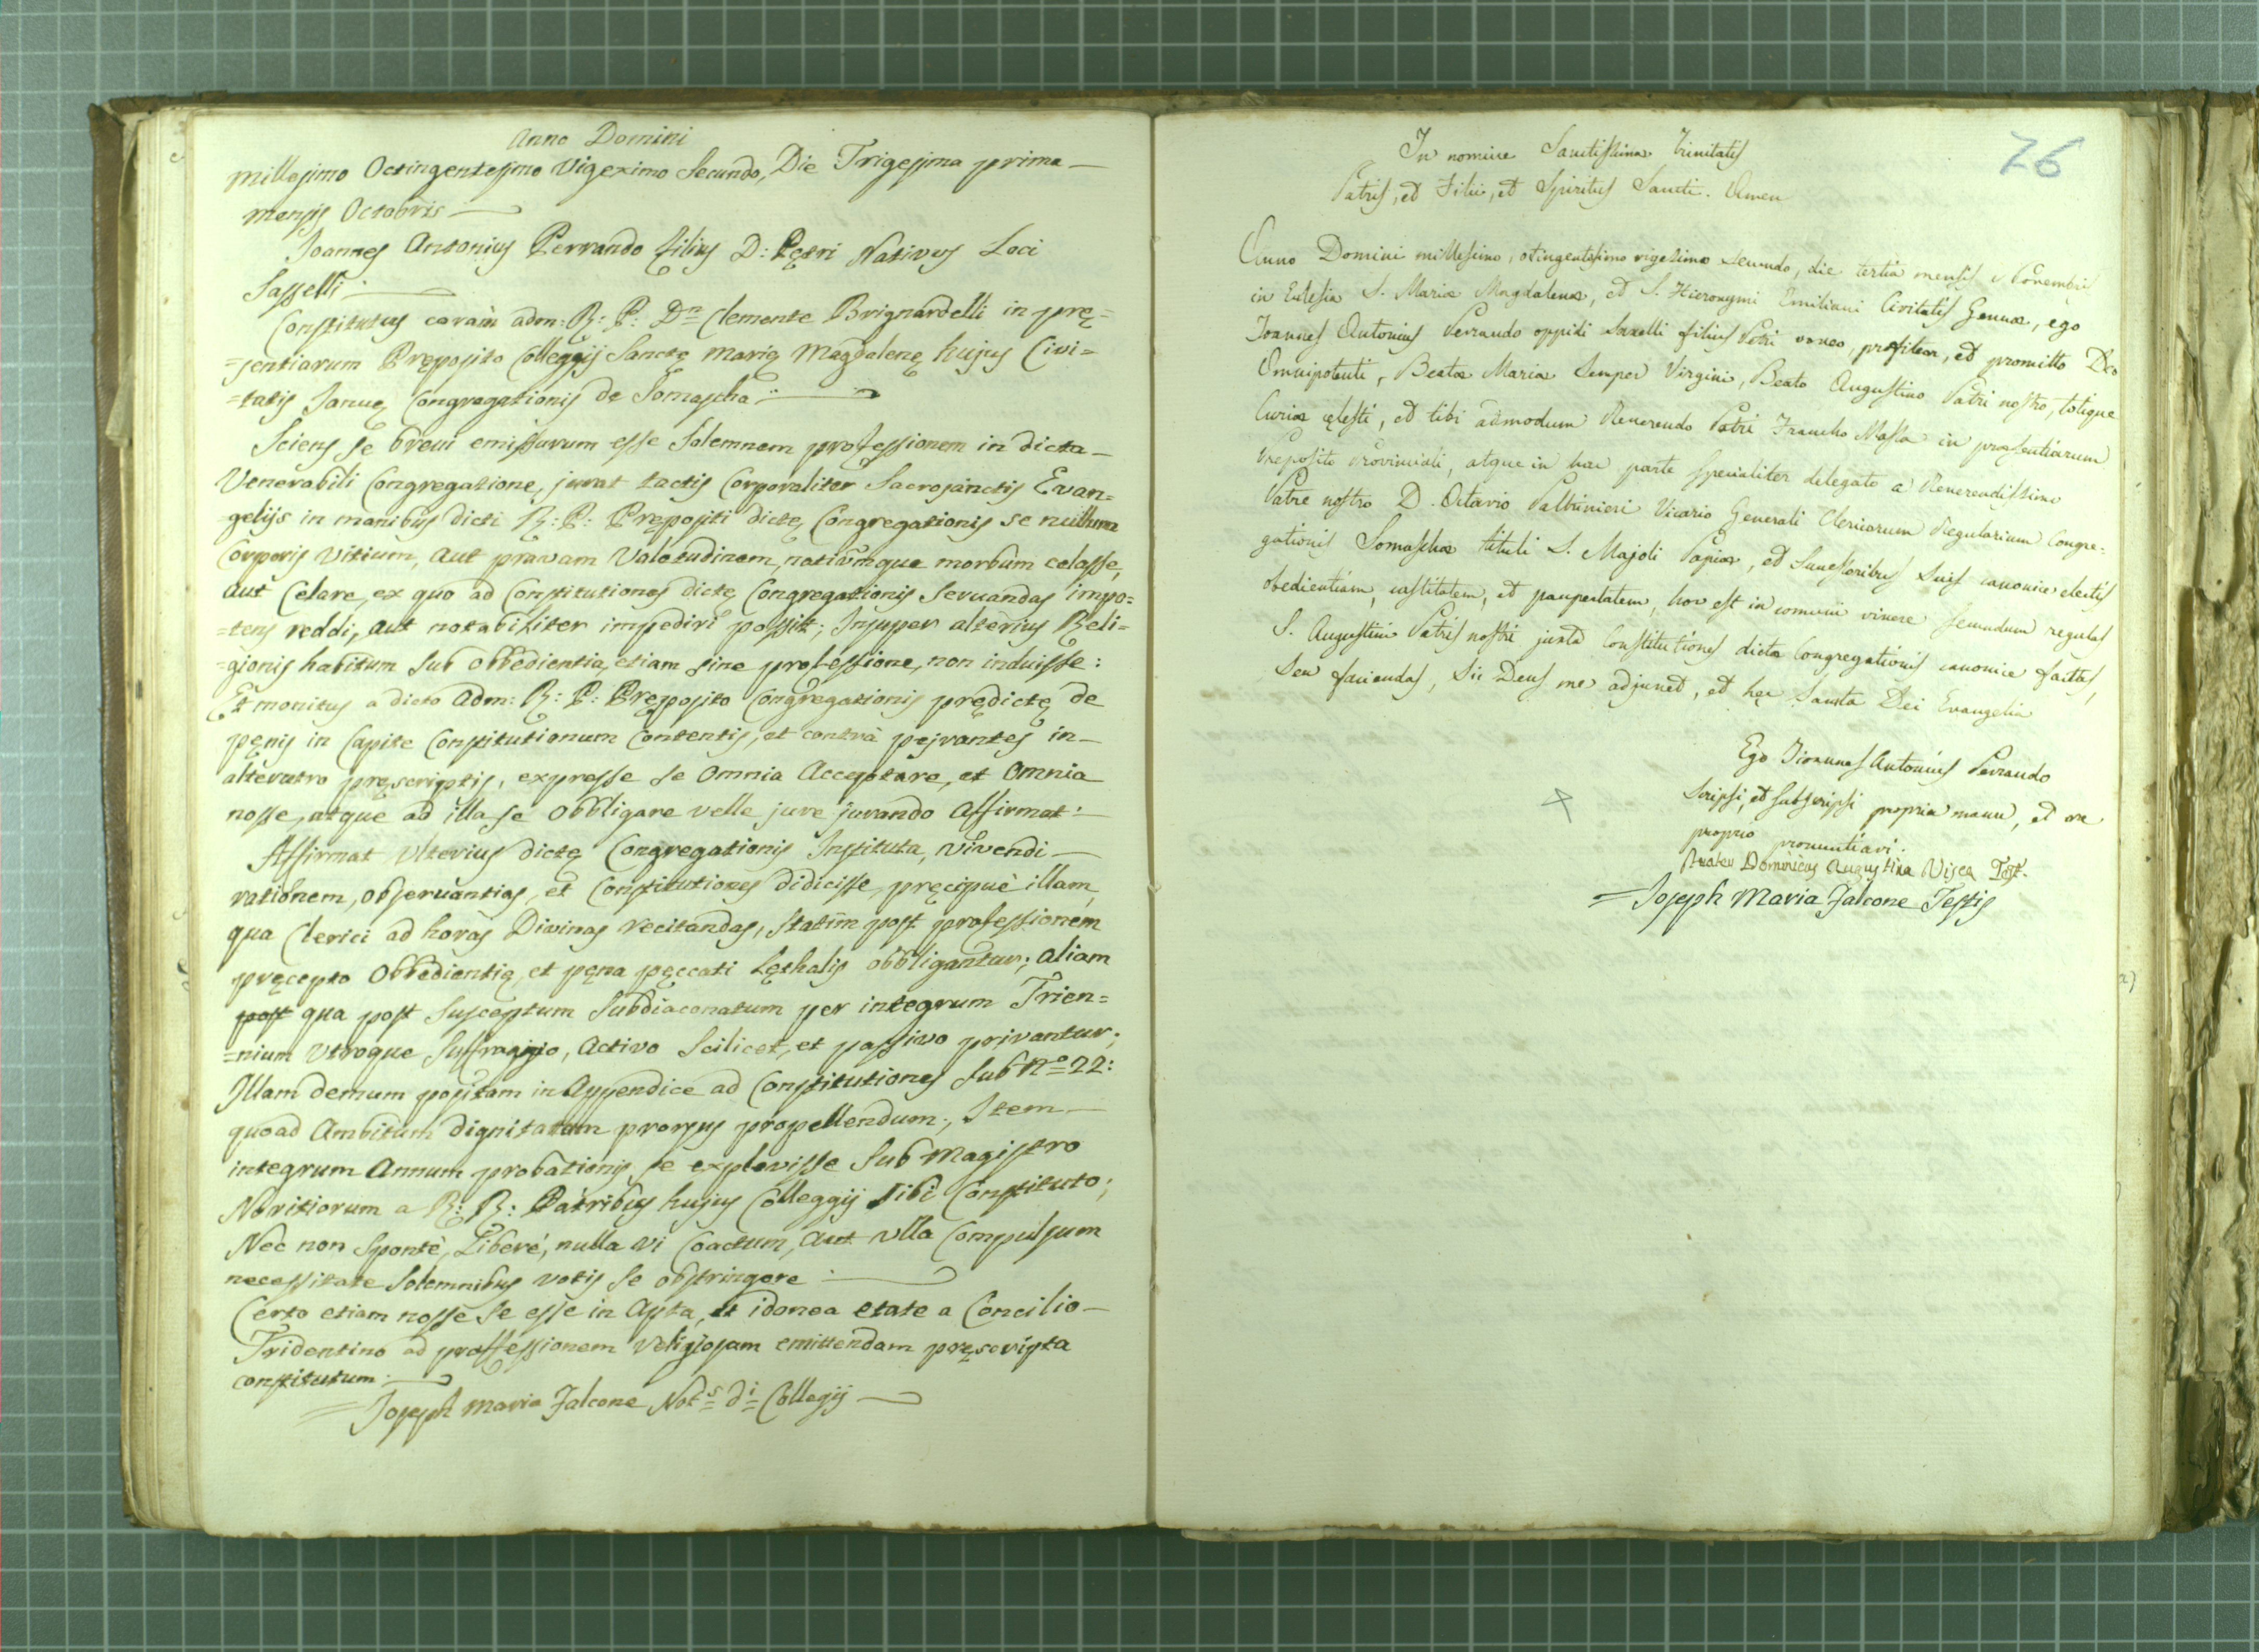 Anno Domini
Millesimo Octingentesimo Vigeximo Secundo, Die Trigesima prima
mensis Octobris
Joannes Antonius Perrando filius D: Pętri Nativus Loci
Sasselli
Constitutus coram adm: R: P: Dn Clemente Brignardelli in prę=
=sentiarum Pręposito Colleggij Sanctę Marię Magdalenę hujus Civi=
=tatis Januę Congregationis de Somascha
Sciens se brevi emissurum esse Solemnem professionem in dicta
Venerabili Congregatione, jurat tactis Corporaliter Sacrosanctis Evan=
=gelijs in manibus dicti R: P: Prępositi dictę Congregationis se nullum
Corporis Vitium, aut pravam Valetudinem, nativumque morbum celasse,
aut Celare, ex quo ad Constitutiones dictę Congregationis Servandas impo=
=tens reddi, aut notabiliter impediri possit; Insuper alterius Reli=
=gionis habitum Sub Obbedientia, etiam sine professione, non induisse:
Et monitus a dicto Adm: R: P: Pręposito Congregationis prędictę de
pęnis in Capite Constitutionum Contentis, et contrà pejrantes in
alterutro pręscriptis, expresse se Omnia Acceptare, et Omnia
nosse, atque ad illa se Obbligare velle jure jurando Affirmat:
Affirmat Ulterius dictę Congregationis Instituta, vivendi
rationem, observantias, et Constitutiones didicisse, pręcipuè illam,
qua Clerici ad horas Divinas recitandas, Statim post professionem
pręcepto Obbedientię, et pęna pęccati Lęthalis obbligantur; aliam
post qua post Susceptum Subdiaconatum per integrum Trien=
=nium Utroque Suffragigio, Activo Scilicet, et passivo privantur;
Illam demum positam in Appendice ad Constitutiones Sub No 22:
quoad Ambitum dignitatum prorsus propellendum; Item
integrum Annum probationis se explevisse Sub Magistro
Novitiorum a R: R: Patribus hujus Colleggij Sibi Constituto;
Nec non Spontè, Liberè, nulla vi Coactum, aut ulla Compulsum
necessitate Solemnibus votis se obstringere
Certo etiam nosse se esse in Apta, et idonea etate a Concilio
Tridentino ad proffessionem religiosam emittendam pręscripta
constitutum
Joseph Maria Falcone Nots di Collegij
26
In nomine Sanctissimæ Trinitatis
Patris, et Filii, et Spiritus Sancti. Amen
Anno Domini millesimo, otingentesimo vigesimo secundo, die tertia mensis Novembris
in Eclesia S. Mariæ Magdalenæ, et S. Hieronymi Emiliani Civitatis Genuæ, ego
Joannes Antonius Perrando oppidi Saxelli filius Petri voveo, profiteor, et promitto Deo
Omnipotenti, Beatæ Mariæ Semper Virgini, Beato Augustino Patri nostro, totique
Curiæ cęlesti, et tibi admodum Reverendo Patri Massa in præsentiarum
Preposito Provinciali, atque in hac parte specialiter delegato a Reverendissimo
Patre nostro D. Octavio Paltrinieri Vicario Generali Clericorum Regularium Congre=
gationis Somaschæ tituli S. Majoli Papiæ, et Successoribus Suis canonice electis
obedientiam, castitatem, et paupertatem, hoc est in comuni vivere secundum regulas
S. Augustini Patris nostri juxta Constitutiones dictæ Congregationis canonice factas,
seu faciendas, Sic Deus me adjuvet, et hęc Sancta Dei Evangelia
Ego Joannes Antonius Perrando
Scripsi, et subscripsi propria manu, et ore
proprio pronuntiavi.
Frater Dominicus Augustina Visca Test.
=Joseph Maria Falcone Testis